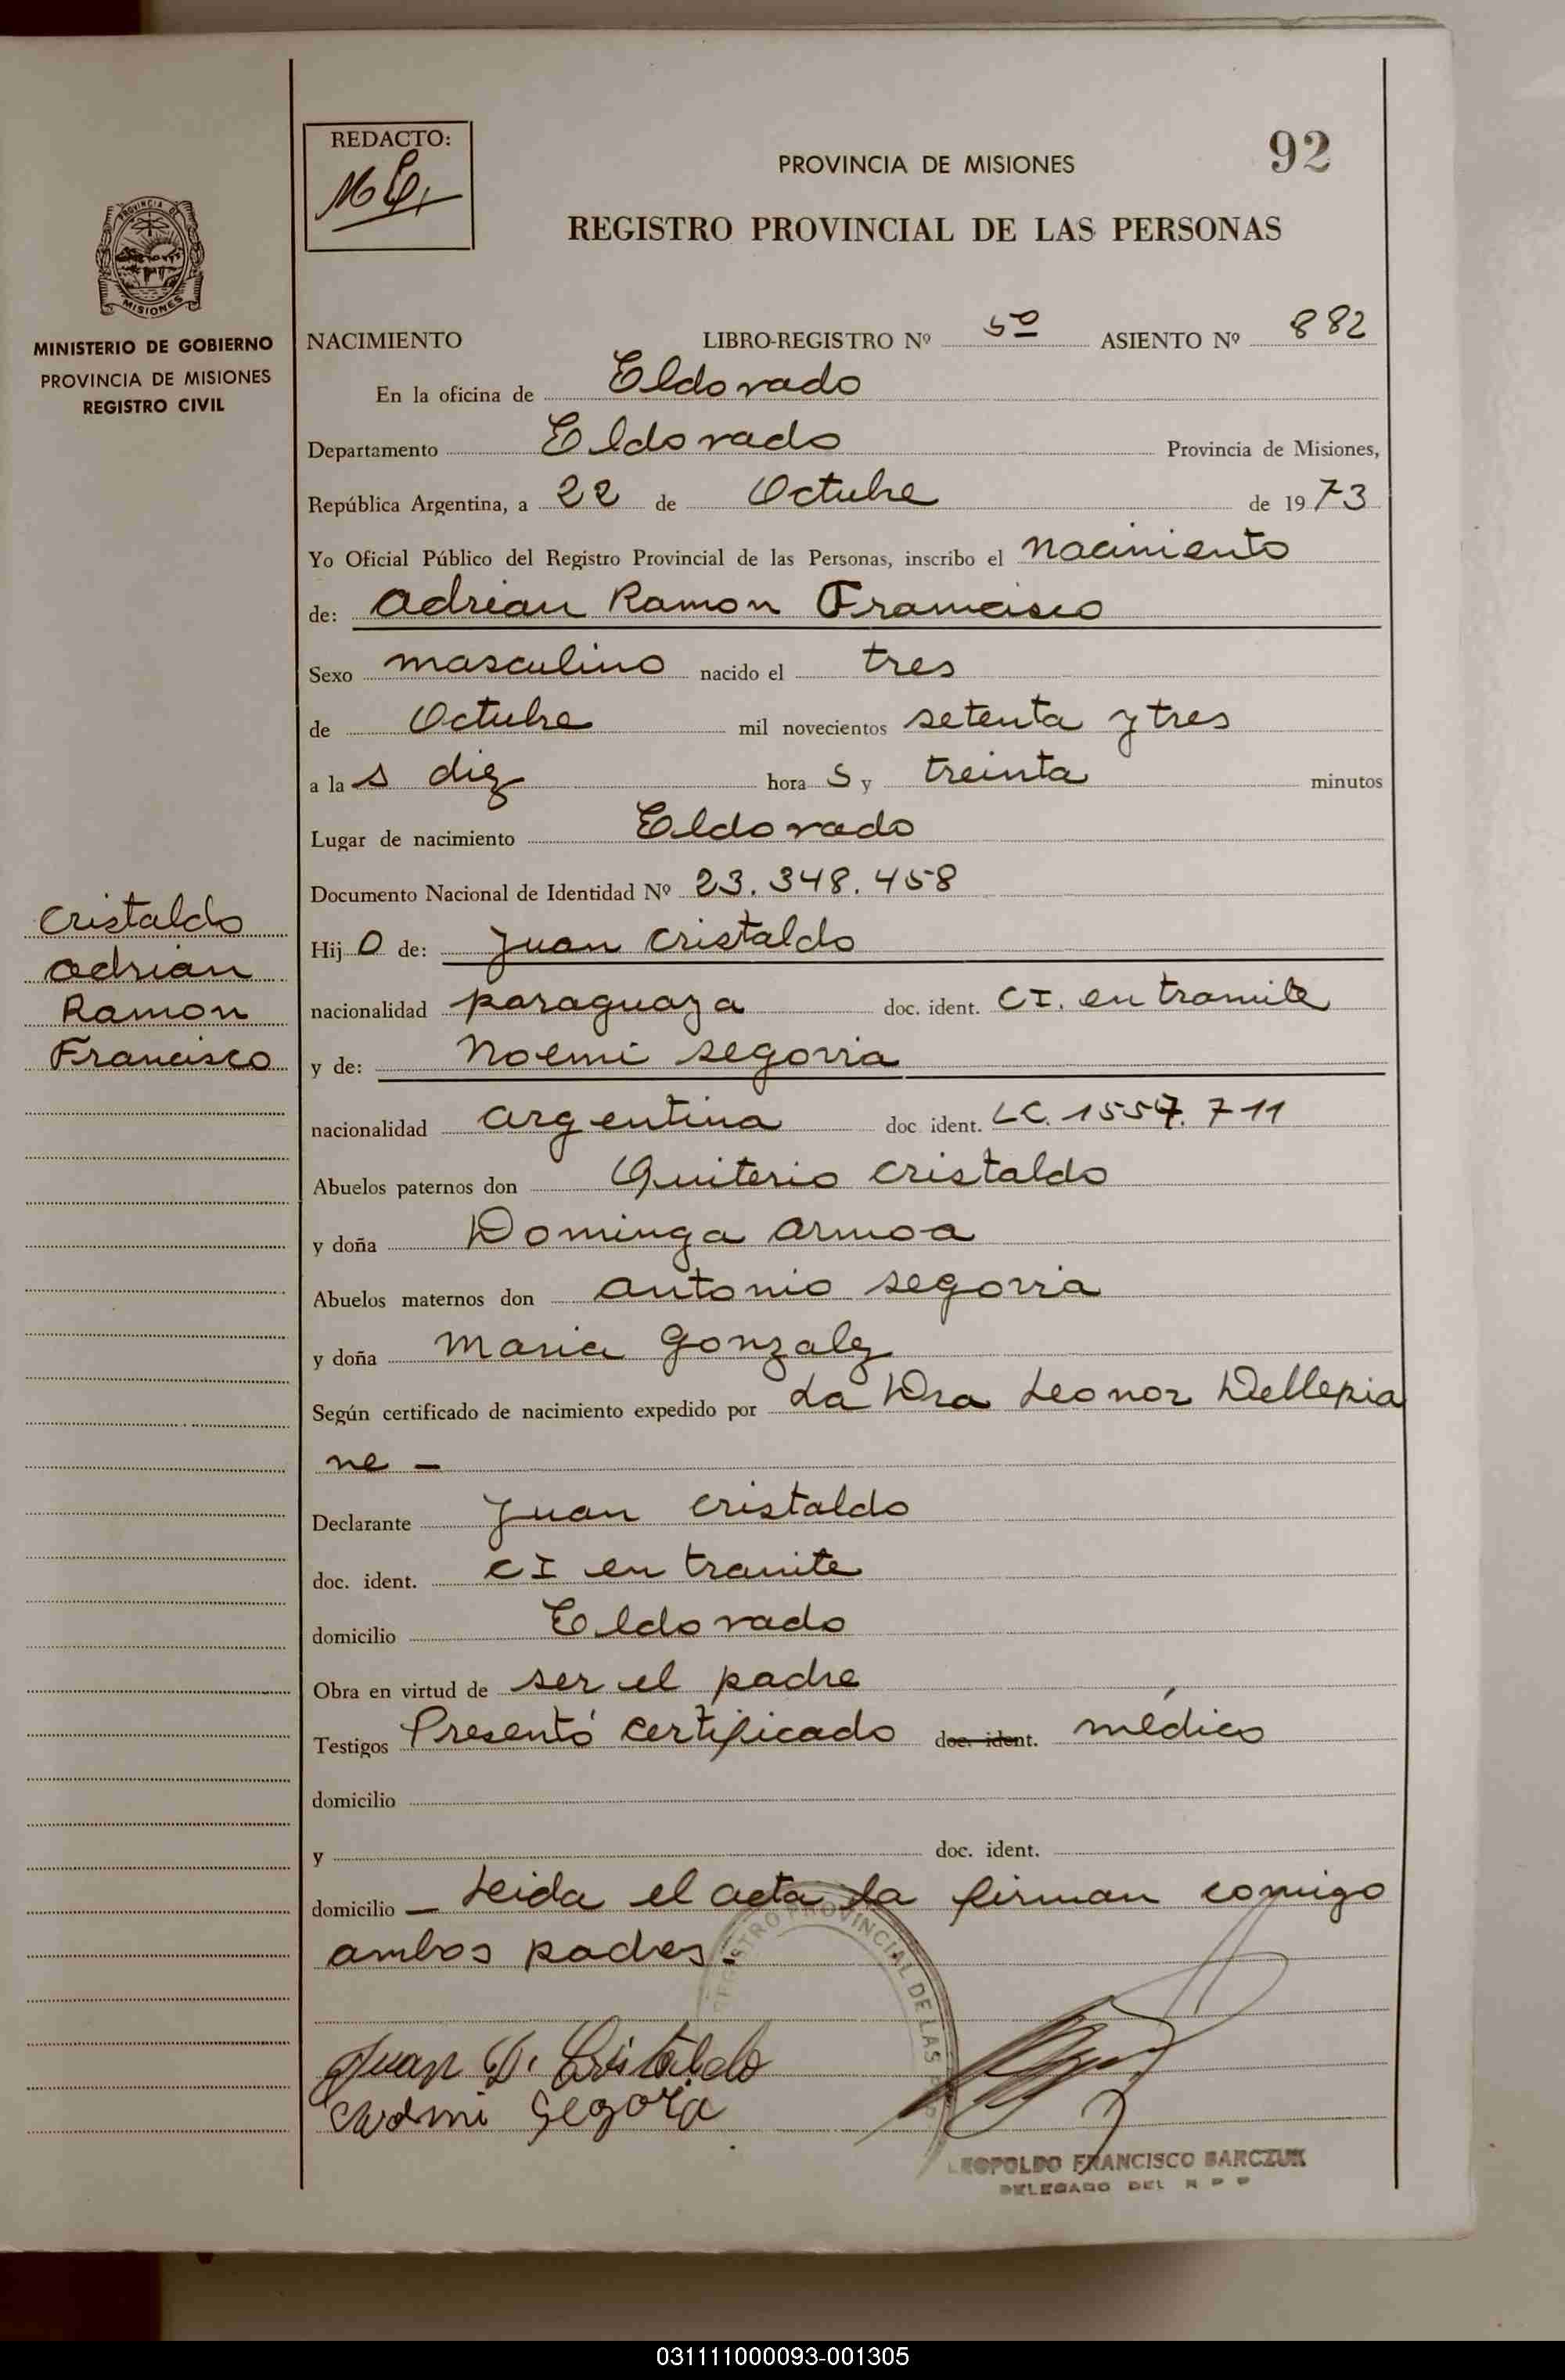 REDACTO:
PROVINCIA DE MISIONES
92
REGISTRO PROVINCIAL DE LAS PERSONAS
PROVINCIA DE
MISIONES
MINISTERIO DE GOBIERNO
PROVINCIA DE MISIONES
REGISTRO CIVIL
NACIMIENTO LIBRO-REGISTRO Nº 5º ASIENTO Nº 882
En la oficina de Eldorado
Departamento Eldorado Provincia de Misiones,
República Argentina, a 22 de Octubre de 1973
Yo Oficial Público del Registro Provincial de las Personas, inscribo el nacimiento
de: Adrian Ramon Francisco
Sexo masculino nacido el tres
de Octubre mil novecientos setenta y tres
a la s diez hora s y treinta minutos
Lugar de nacimiento Eldorado
Documento Nacional de Identidad Nº 23.348.458
Cristaldo
Adrian
Ramon
Francisco
Hijo de: Juan Cristaldo
nacionalidad paraguaya doc. ident. CI. en tramite
y de: Noemi Segovia
nacionalidad argentina doc. ident. LC. 1557.711
Abuelos paternos don Quiterio Cristaldo
y doña Dominga Armoa
Abuelos maternos don Antonio Segovia
y doña Maria Gonzalez
Según certificado de nacimiento expedido por La Dra Leonor Dellepia
ne -
Declarante Juan Cristaldo
doc. ident. CI en tramite
domicilio Eldorado
Obra en virtud de ser el padre
Testigos Presentó certificado doc. ident. médico
domicilio
y doc. ident.
domicilio - Leida el acta la firman comigo
ambos padres.
REGISTRO PROVINCIAL DE LAS
Juan D. Cristaldo
Noemi Segovia
LEOPOLDO FRANCISCO BARCZUK
DELEGADO DEL R P P
031111000093-001305